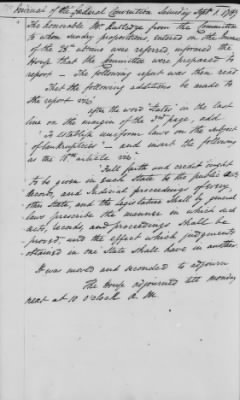 Journal of the federal Convention Saturday Septr. 1. 1787
The honorable Mr Rutledge from the Committee
to whom sundry propositions, entered on the Journal
of the 28th ultimo were referred, informed the
House that the Committee were prepared to
report — The following report was then read
That the following additions be made to
the report viz
after the word States in the last
line on the margin of the 3rd page, add
"To establish uniform laws on the subject
of bankruptcies" — and insert the following
as the 16th article viz
"Full faith and credit ought
to be given in each State to the public acts,
records, and Judicial proceedings of every
other State, and the Legislature shall by general
laws prescribe the manner in which such
acts, records, and proceedings shall be
proved, and the effect which judgements
obtained in one State shall have in another
It was moved and seconded to adjourn
The House adjourned till monday
next at 10 o'Clock A. M.